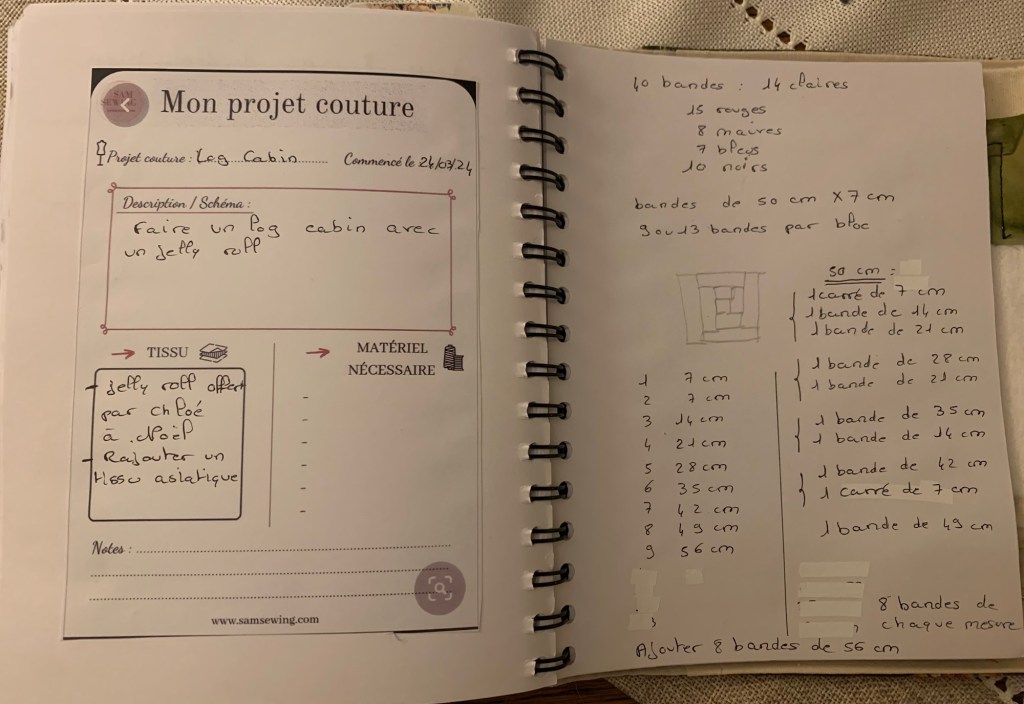 SAM
SEWING
Mon projet couture
Projet couture : Log Cabin
Commencé le 24/03/24
Description / Schéma :
Faire un log cabin avec
un jelly roll
TISSU
- jelly roll offert
par Chloé
à Noël
- Rajouter un
tissu asiatique
MATÉRIEL
NÉCESSAIRE
-
-
-
-
-
-
Notes :
www.samsewing.com
40 bandes : 14 claires
15 rouges
8 maires
7 bleus
10 noirs
bandes de 50 cm X 7 cm
9 ou 13 bandes par bloc
1 7 cm
2 7 cm
3 14 cm
4 21 cm
5 28 cm
6 35 cm
7 42 cm
8 49 cm
9 56 cm
50 cm :
1 carré de 7 cm
1 bande de 14 cm
1 bande de 21 cm
1 bande de 28 cm
1 bande de 21 cm
1 bande de 35 cm
1 bande de 14 cm
1 bande de 42 cm
1 carré de 7 cm
1 bande de 49 cm
8 bandes de
chaque mesure
Ajouter 8 bandes de 56 cm